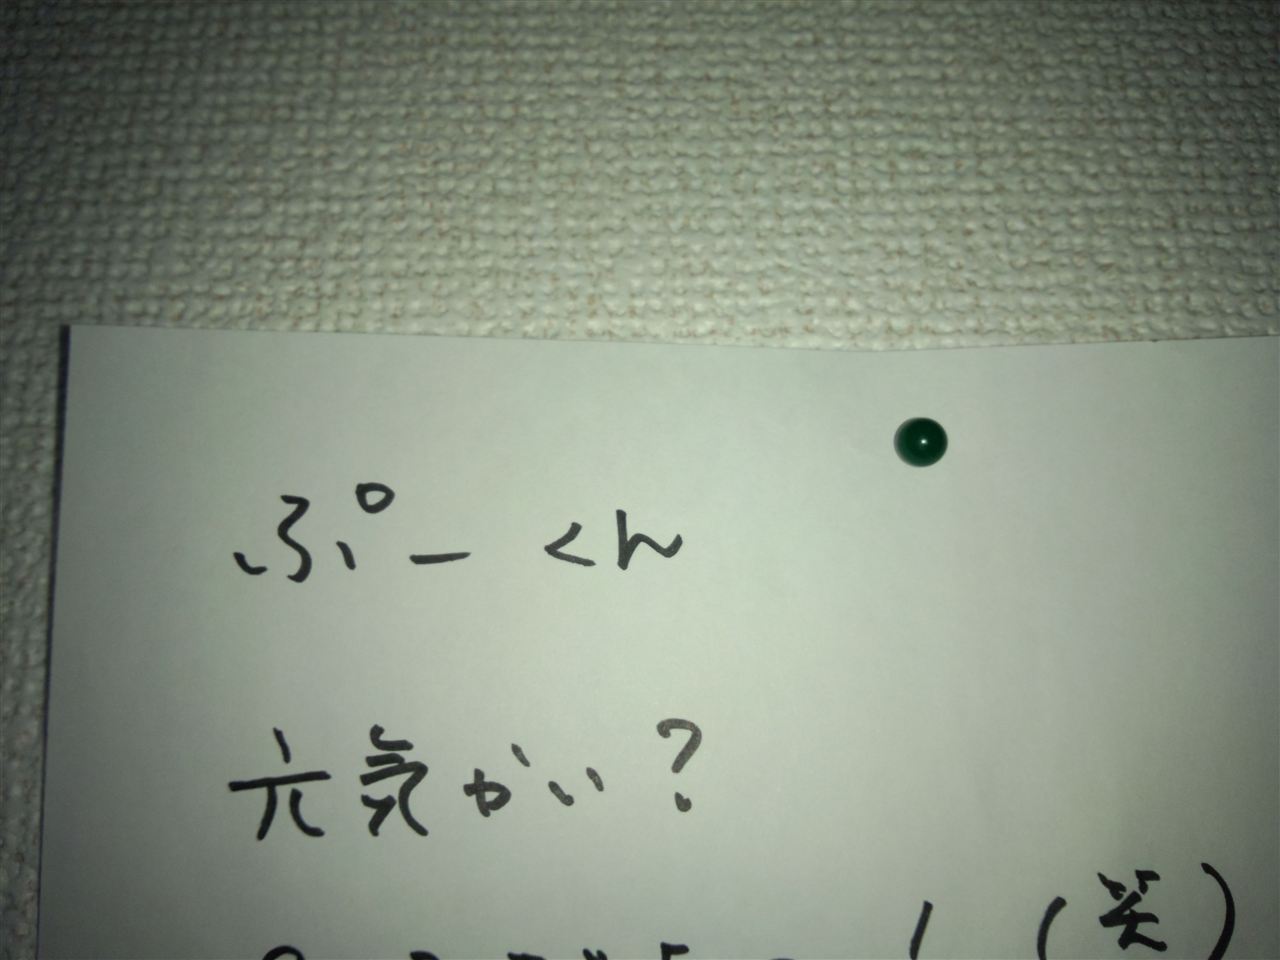 ぷーくん
元気かい?
(笑)